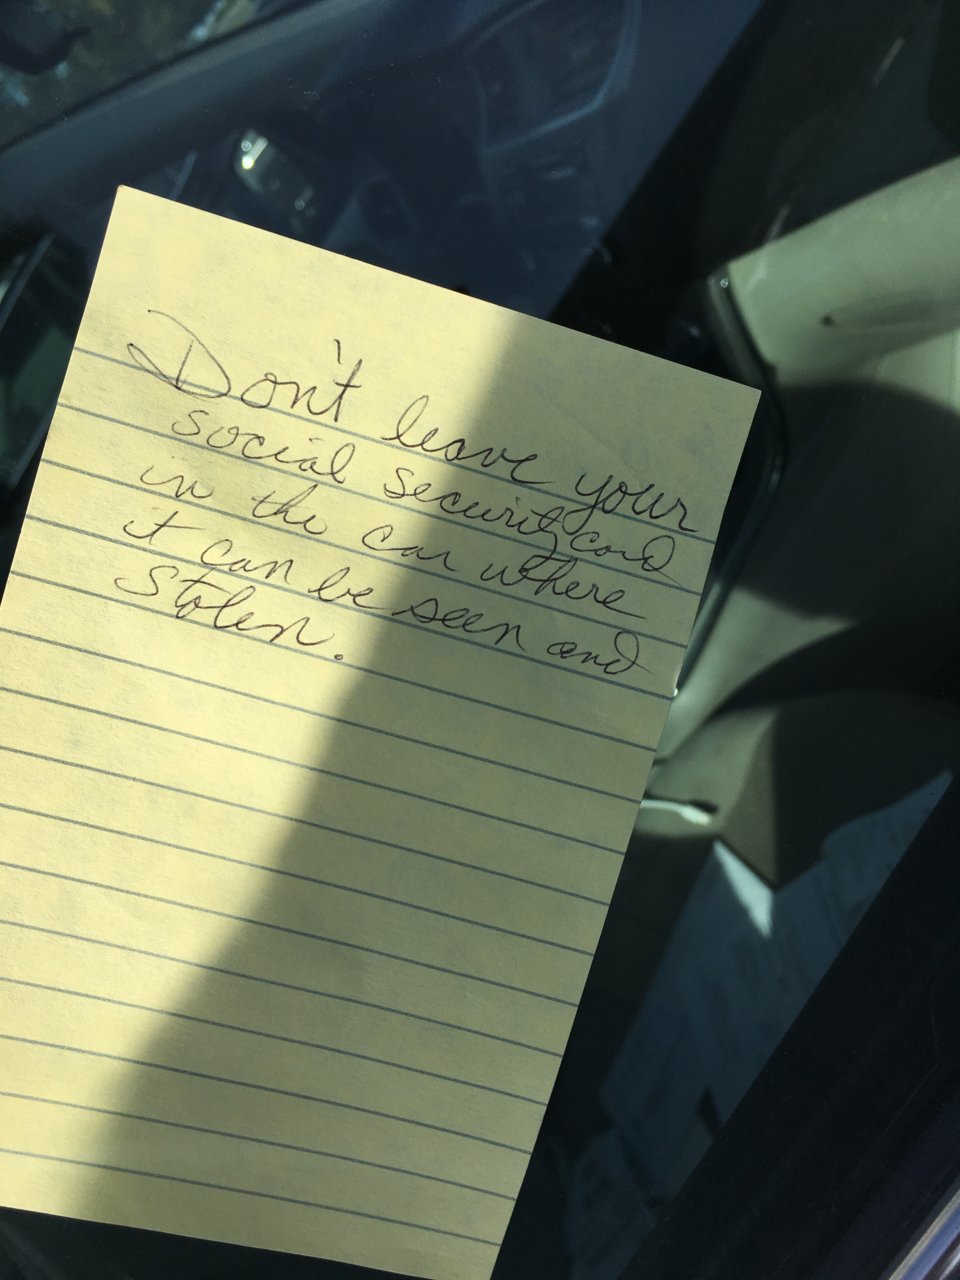 Don't leave your
social security card
in the car where
it can be seen and
stolen.